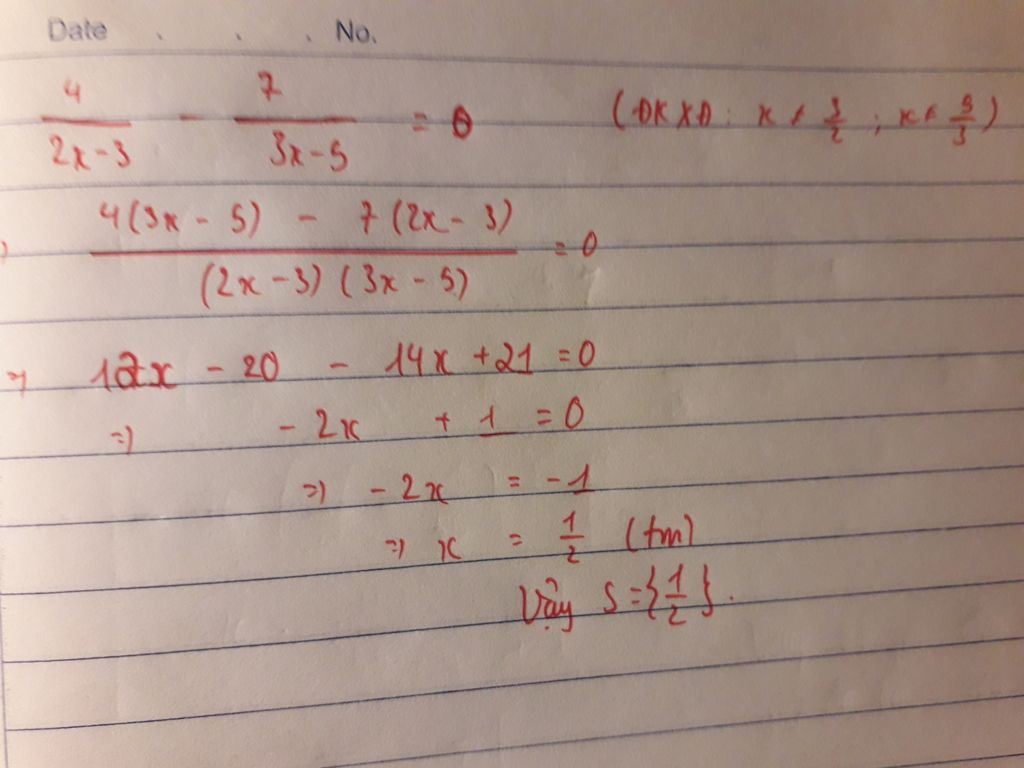 Date . . . No.
4/(2x-3) - 7/(3x-5) = 0 (ĐKXĐ: x ≠ 3/2 ; x ≠ 5/3)
(4(3x - 5) - 7(2x - 3))/((2x - 3)(3x - 5)) = 0
=> 12x - 20 - 14x + 21 = 0
=> - 2x + 1 = 0
=> - 2x = -1
=> x = 1/2 (tm)
Vậy S = {1/2}.